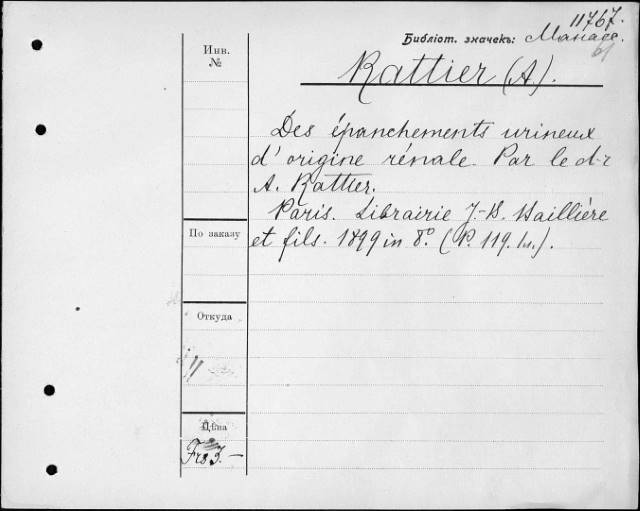 11767.
Библіот. значекъ: Манасс.
Инв.
№
Rattier (A).
Des épanchements urineux
d'origine rénale. Par le d-r
A. Rattier.
Paris. Librairie J.-B. Baillière
По заказу
et fils. 1899 in 8.° (P. 119. )
Откуда
Цѣна
Frs 3.—